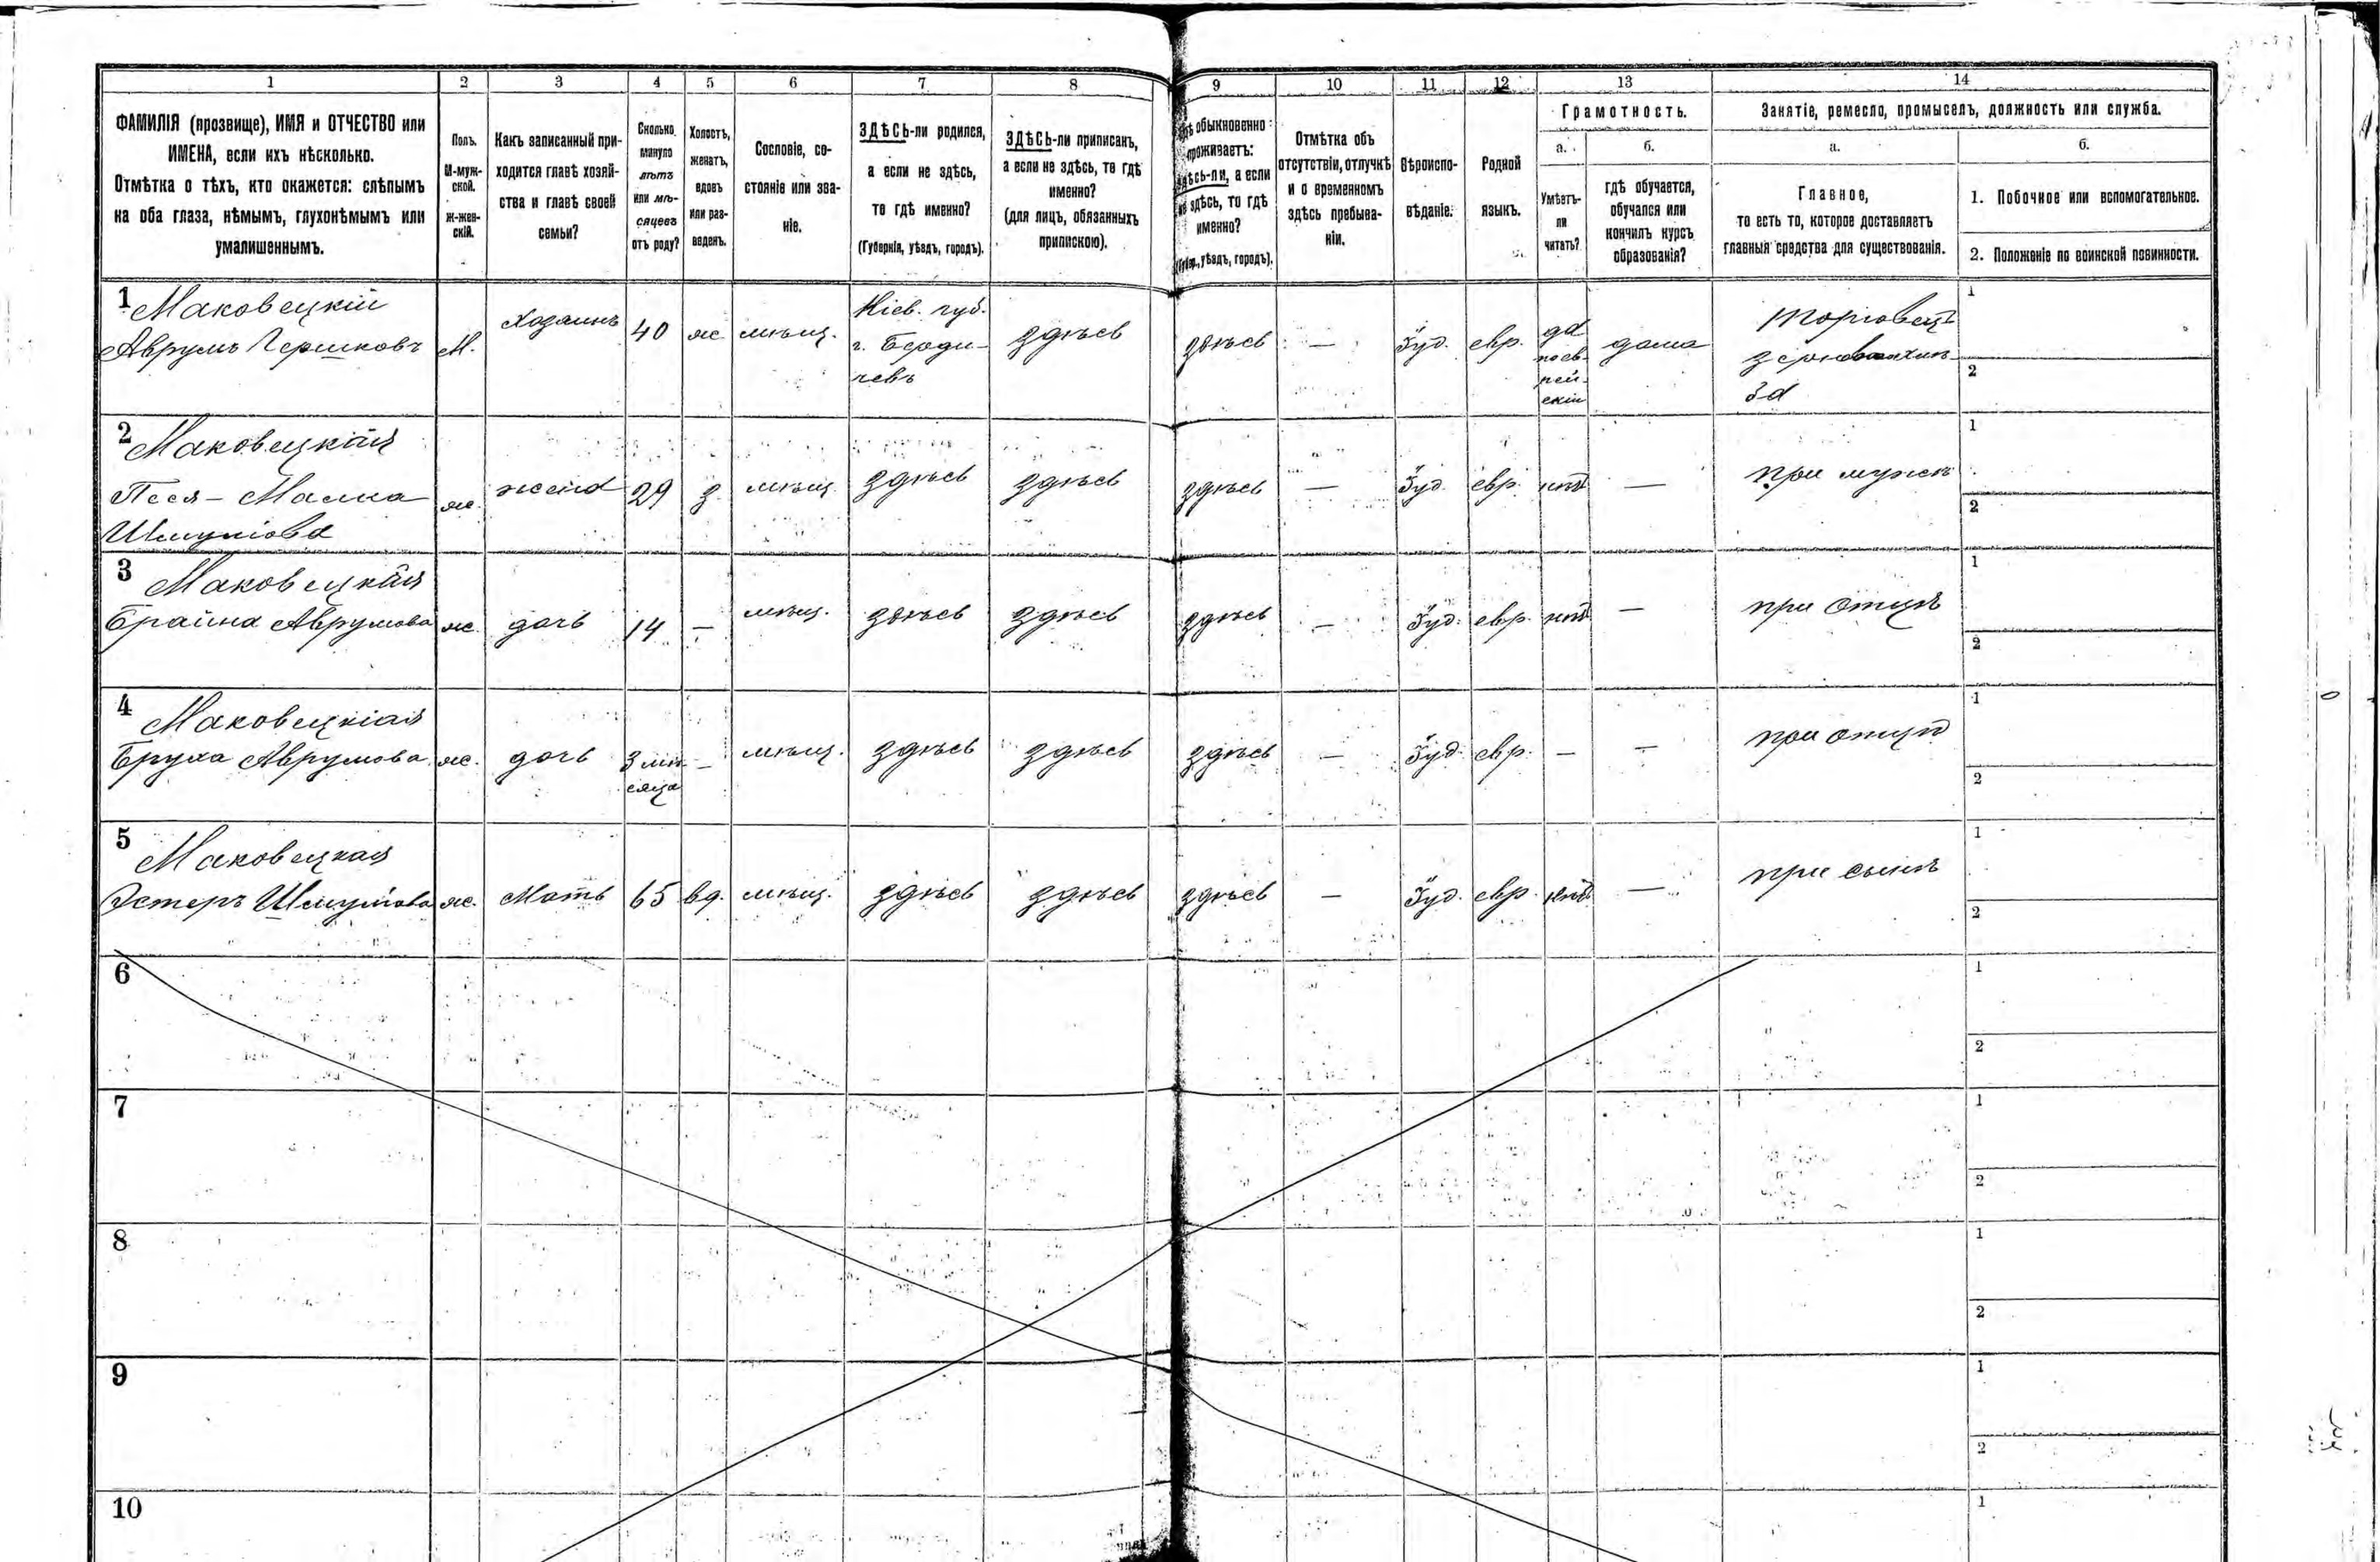 1 2 3 4 5 6 7 8 9 10 11 12 13 14
ФАМИЛІЯ (прозвище), ИМЯ и ОТЧЕСТВО или
ИМЕНА, если ихъ нѣсколько.
Отмѣтка о тѣхъ, кто окажется: слѣпымъ
на оба глаза, нѣмымъ, глухонѣмымъ или
умалишеннымъ.
Полъ.
М-муж-
ской.
Ж-жен-
скій.
Какъ записанный при-
ходится главѣ хозяй-
ства и главѣ своей
семьи?
Сколько
минуло
лѣтъ
или мѣ-
сяцевъ
отъ роду?
Холостъ,
женатъ,
вдовъ
или раз-
веденъ.
Сословіе, со-
стояніе или зва-
ніе.
ЗДѢСЬ-ли родился,
а если не здѣсь,
то гдѣ именно?
(Губернія, уѣздъ, городъ).
ЗДѢСЬ-ли приписан,
а если не здѣсь, то гдѣ
именно?
(для лицъ, обязанныхъ
припискою).
обыкновенно
проживаетъ:
здѣсь-ли, а если
не здѣсь, то гдѣ
именно?
(Губер., уѣздъ, городъ).
Отмѣтка объ
отсутствіи, отлучкѣ
и о временномъ
здѣсь пребыва-
ніи.
Вѣроиспо-
вѣданіе.
Родной
языкъ.
Грамотность.
а. б.
Умѣетъ-
ли
читать?
гдѣ обучается,
обучался или
кончилъ курсъ
образованія?
Занятіе, ремесло, промыселъ, должность или служба.
а. б.
Главное,
то есть то, которое доставляетъ
главныя средства для существованія.
1. Побочное или вспомогательное.
2. Положеніе по воинской повинности.
1 Маковецкій
Аврумъ Гершковъ М. Хозяинъ 40 ж мѣщ.
Кіев. губ.
г. Берди-
чевъ
здѣсь здѣсь — Іуд. евр.
да
по ев-
рей-
скіи
дома
торговецъ
1
2
2 Маковецкіая
Песя - Малка
Шмуліова
ж. жена 29 з. мѣщ. здѣсь здѣсь здѣсь — Іуд. евр. нѣт — при мужѣ
1
2
3 Маковецкіая
Брайна Аврумова ж. дочь 14 — мѣщ. здѣсь здѣсь здѣсь — Іуд. евр. нѣт — при отцѣ
1
2
4 Маковецкіая
Бруха Аврумова ж. дочь 3 мѣ-
сяца
— мѣщ. здѣсь здѣсь здѣсь — Іуд. евр. — — при отцѣ
1
2
5 Маковецкая
Эстеръ Шмуліова ж. Мать 65 вд. мѣщ. здѣсь здѣсь здѣсь — Іуд. евр. нѣт — при сынѣ
1
2
6
1
2
7
1
2
8
1
2
9
1
2
10
1